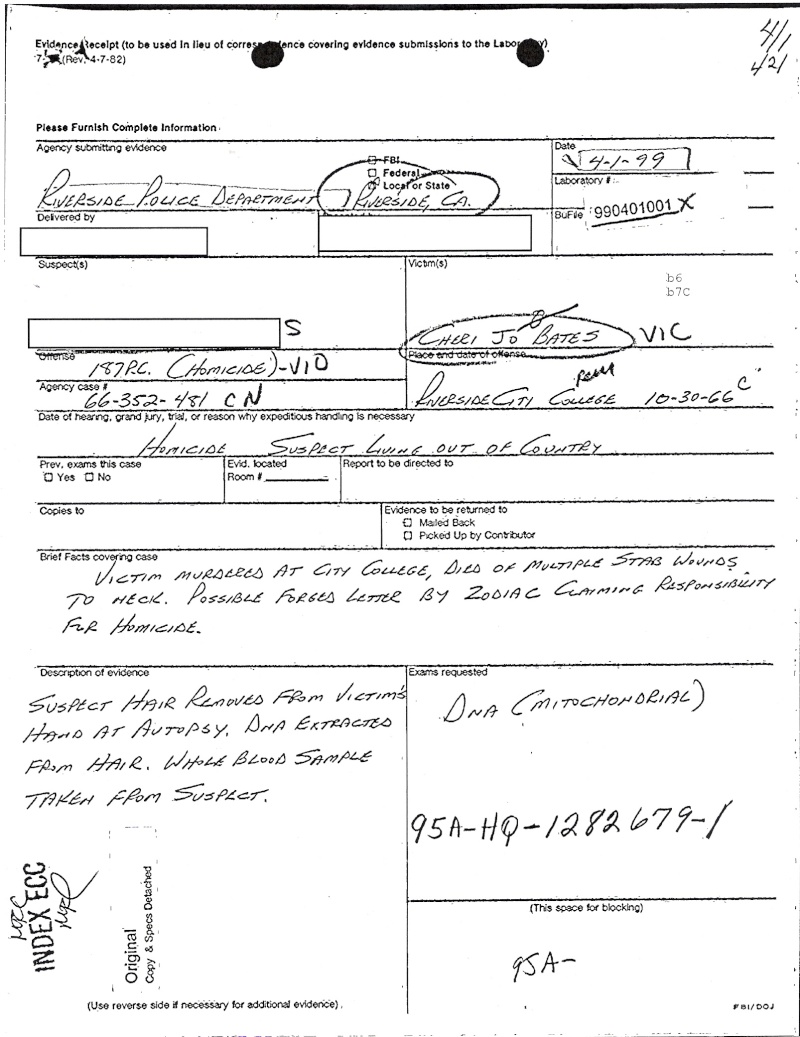 4/1
421
Evidence Receipt (to be used in lieu of correspondence covering evidence submissions to the Laboratory)
(Rev. 4-7-82)
Please Furnish Complete Information
Agency submitting evidence
☐ FBI
☐ Federal
☐ Local or State
RIVERSIDE POLICE DEPARTMENT RIVERSIDE, CA.
Date
4-1-99
Laboratory #
BuFile 990401001 X
Delivered by
Suspect(s)
S
Victim(s)
b6
b7C
CHERI JO BATES VIC
Offense
187 P.C. (HOMICIDE)-VIO
Place and date of offense
RIVERSIDE CITY COLLEGE 10-30-66
Agency case #
66-352-481 CN
Date of hearing, grand jury, trial, or reason why expeditious handling is necessary
HOMICIDE SUSPECT LIVING OUT OF COUNTRY
Prev. exams this case
☐ Yes ☐ No
Evid. located
Room #
Report to be directed to
Copies to
Evidence to be returned to
☐ Mailed Back
☐ Picked Up by Contributor
Brief Facts covering case
VICTIM MURDERED AT CITY COLLEGE, DIED OF MULTIPLE STAB WOUNDS
TO NECK. POSSIBLE FORGED LETTER BY ZODIAC CLAIMING RESPONSIBILITY
FOR HOMICIDE.
Description of evidence
SUSPECT HAIR REMOVED FROM VICTIM'S
HAND AT AUTOPSY. DNA EXTRACTED
FROM HAIR. WHOLE BLOOD SAMPLE
TAKEN FROM SUSPECT.
Exams requested
DNA (MITOCHONDRIAL)
95A-HQ-1282679-1
INDEX ECC
Original
Copy & Specs Detached
(This space for blocking)
95A-
(Use reverse side if necessary for additional evidence).
FBI/DOJ